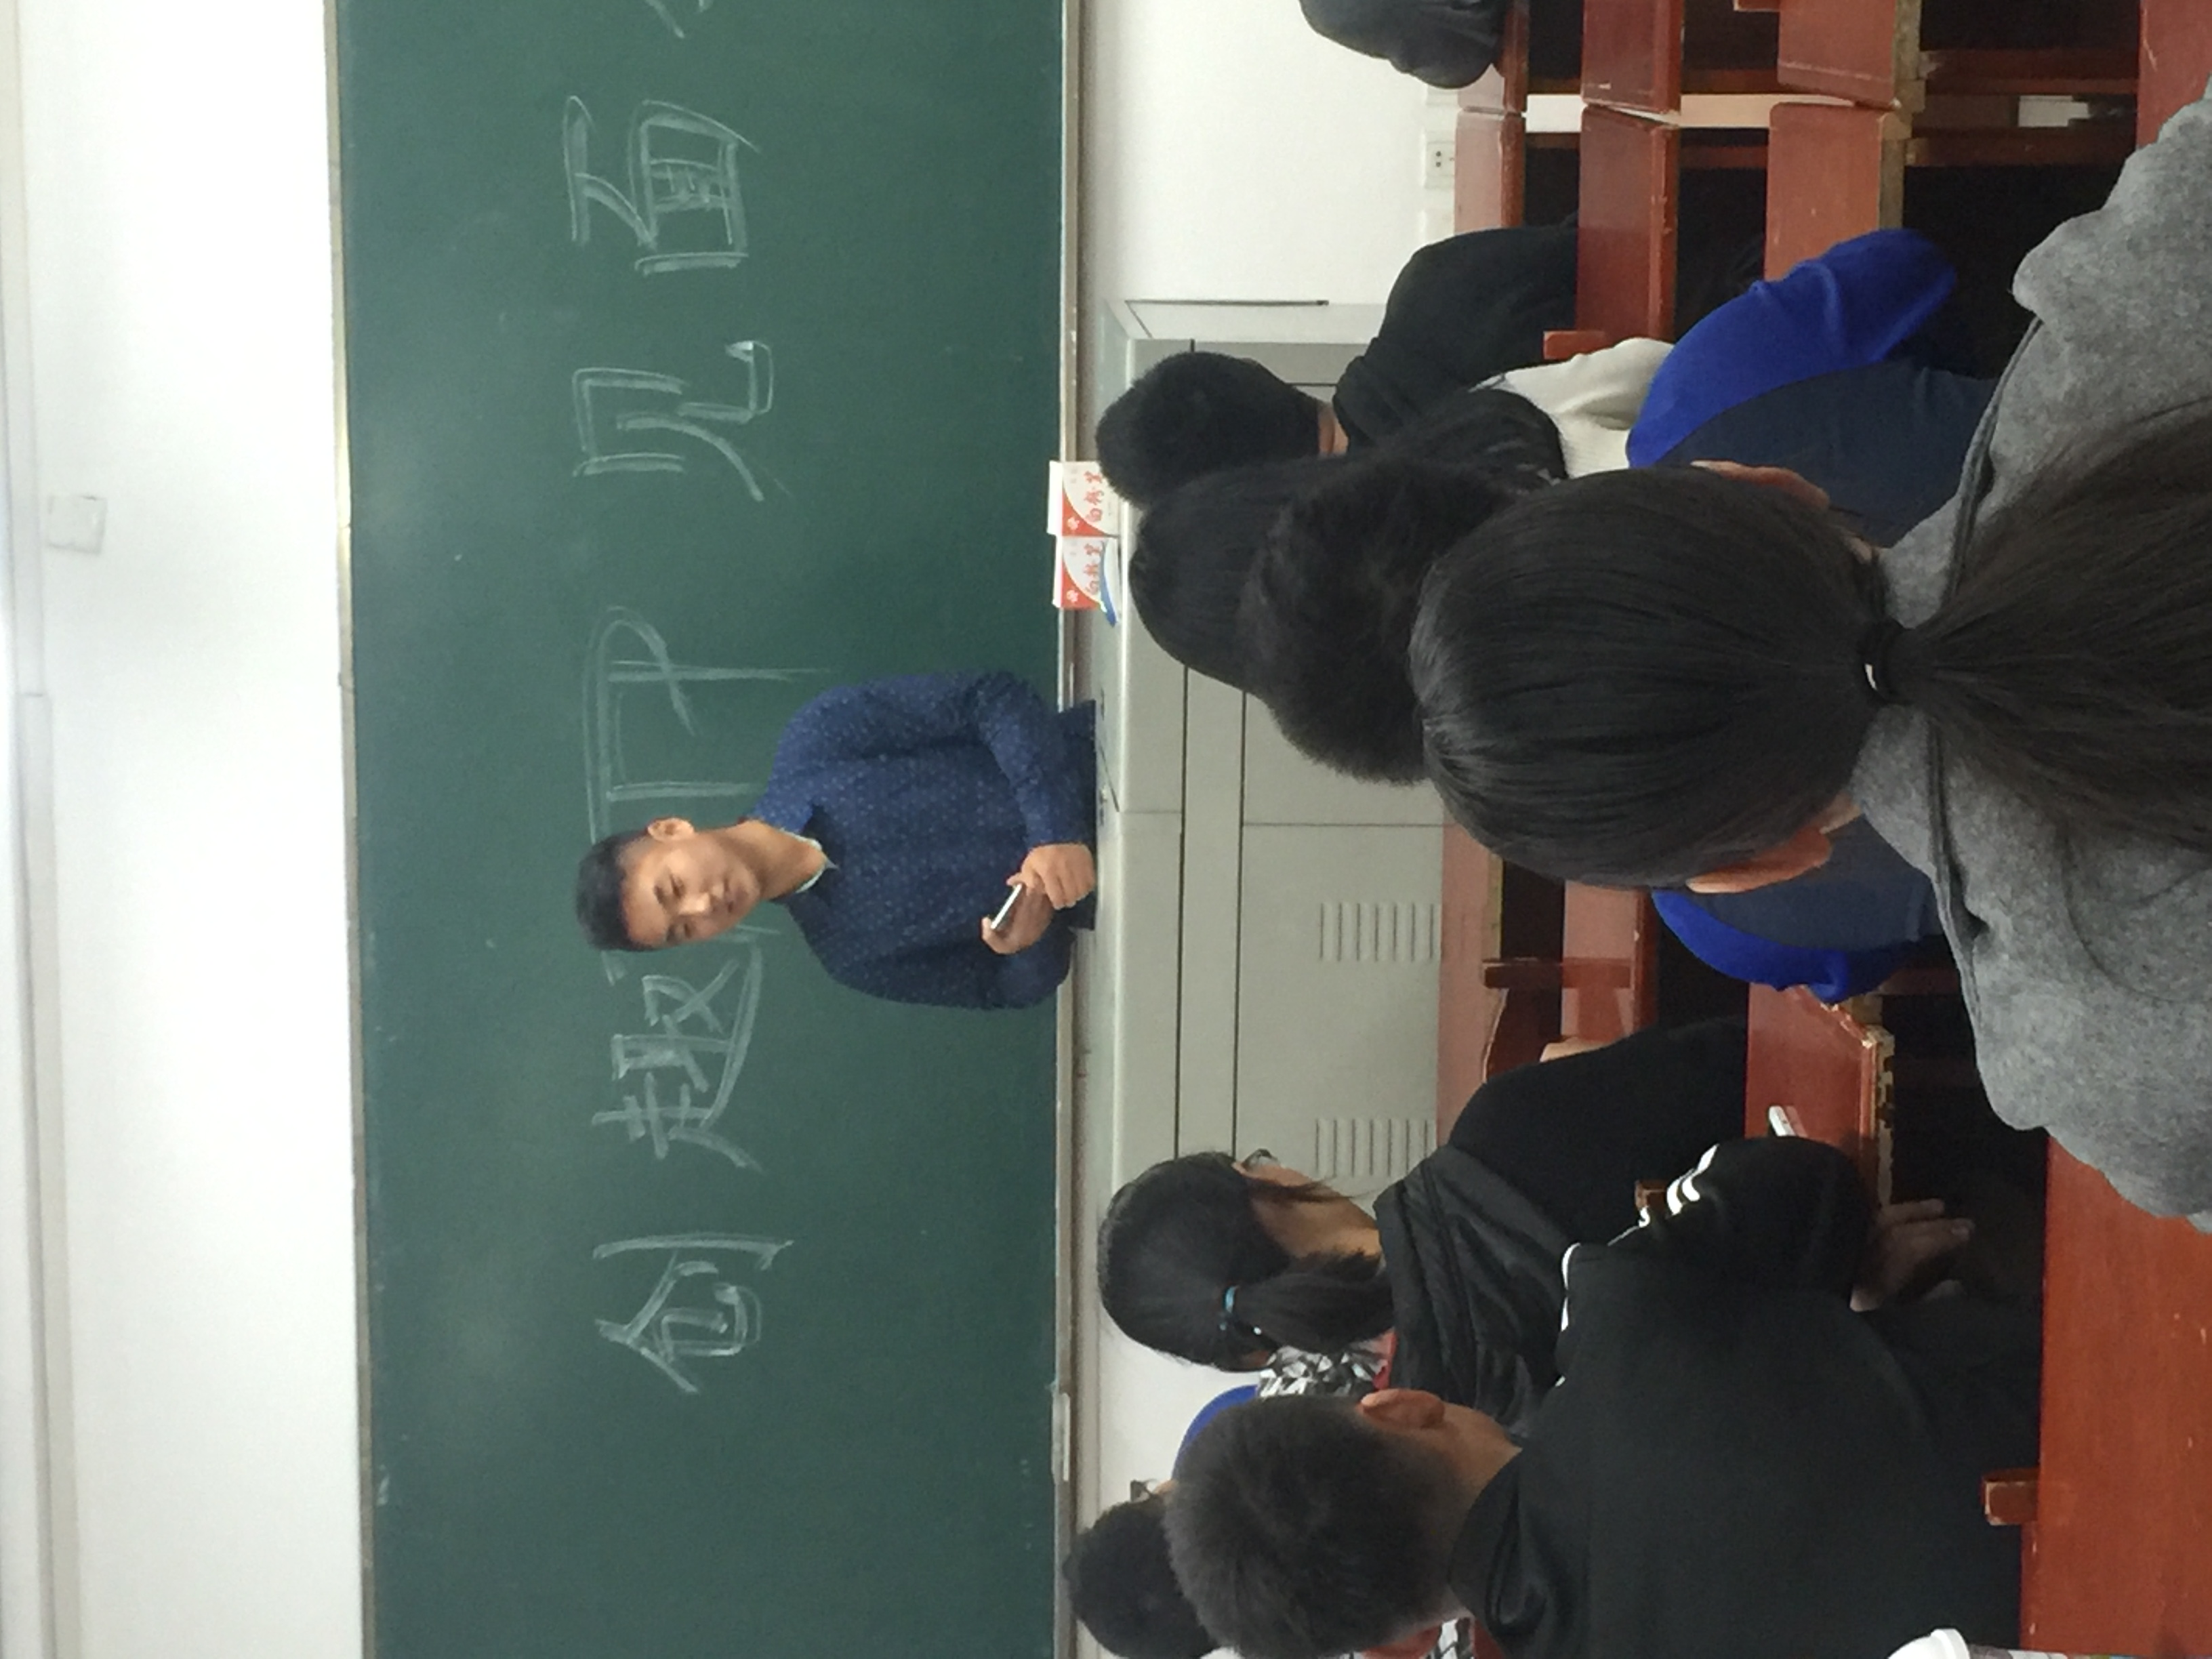 创趣 见面
白粉笔 白粉笔